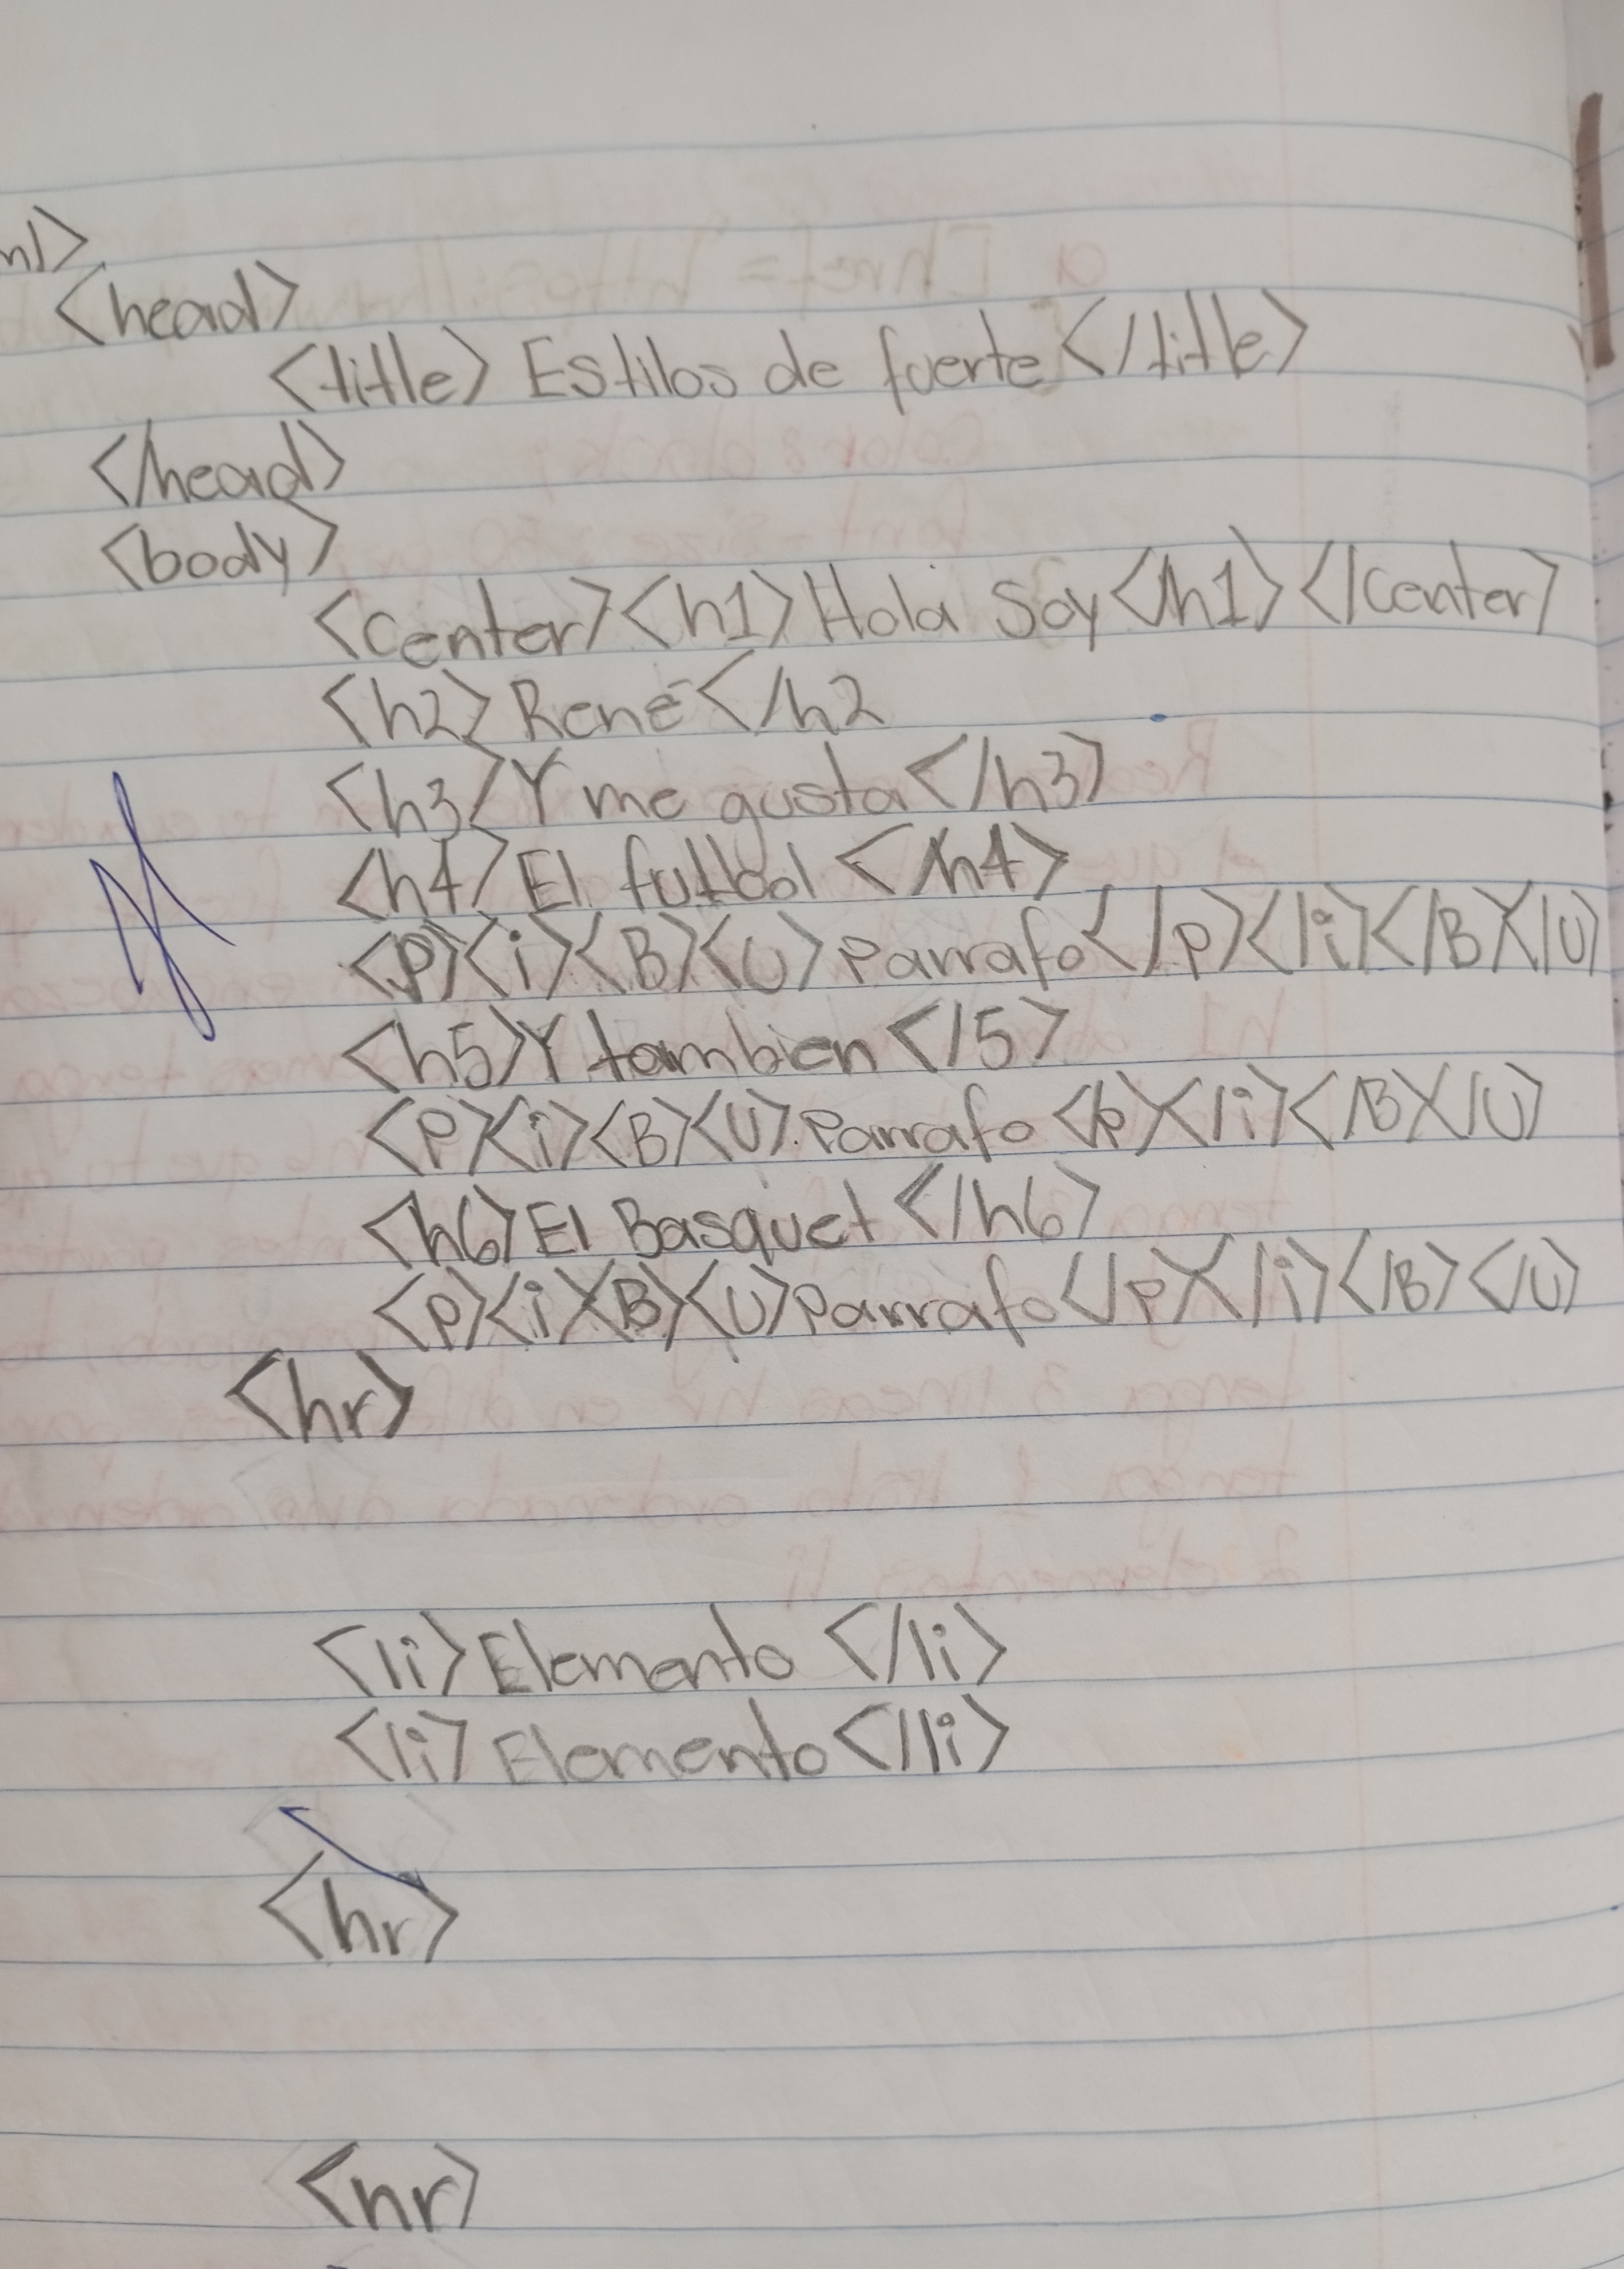 ml>
<head>
<title> Estilos de fuerte </title>
</head>
<body>
<center><h1>Hola Soy</h1></center>
<h2>René</h2
<h3>Y me gusta</h3>
<h4>El futbol </h4>
<p><i><B><U>Parrafo</p></i></B></U>
<h5>Y tambien </5>
<p><i><B><U>Parrafo <p></i></B></U>
<h6>El Basquet </h6>
<p><i><B><U>Parrafo</p></i></B></U>
<hr>
<li>Elemento </li>
<li>Elemento</li>
<hr>
<hr>